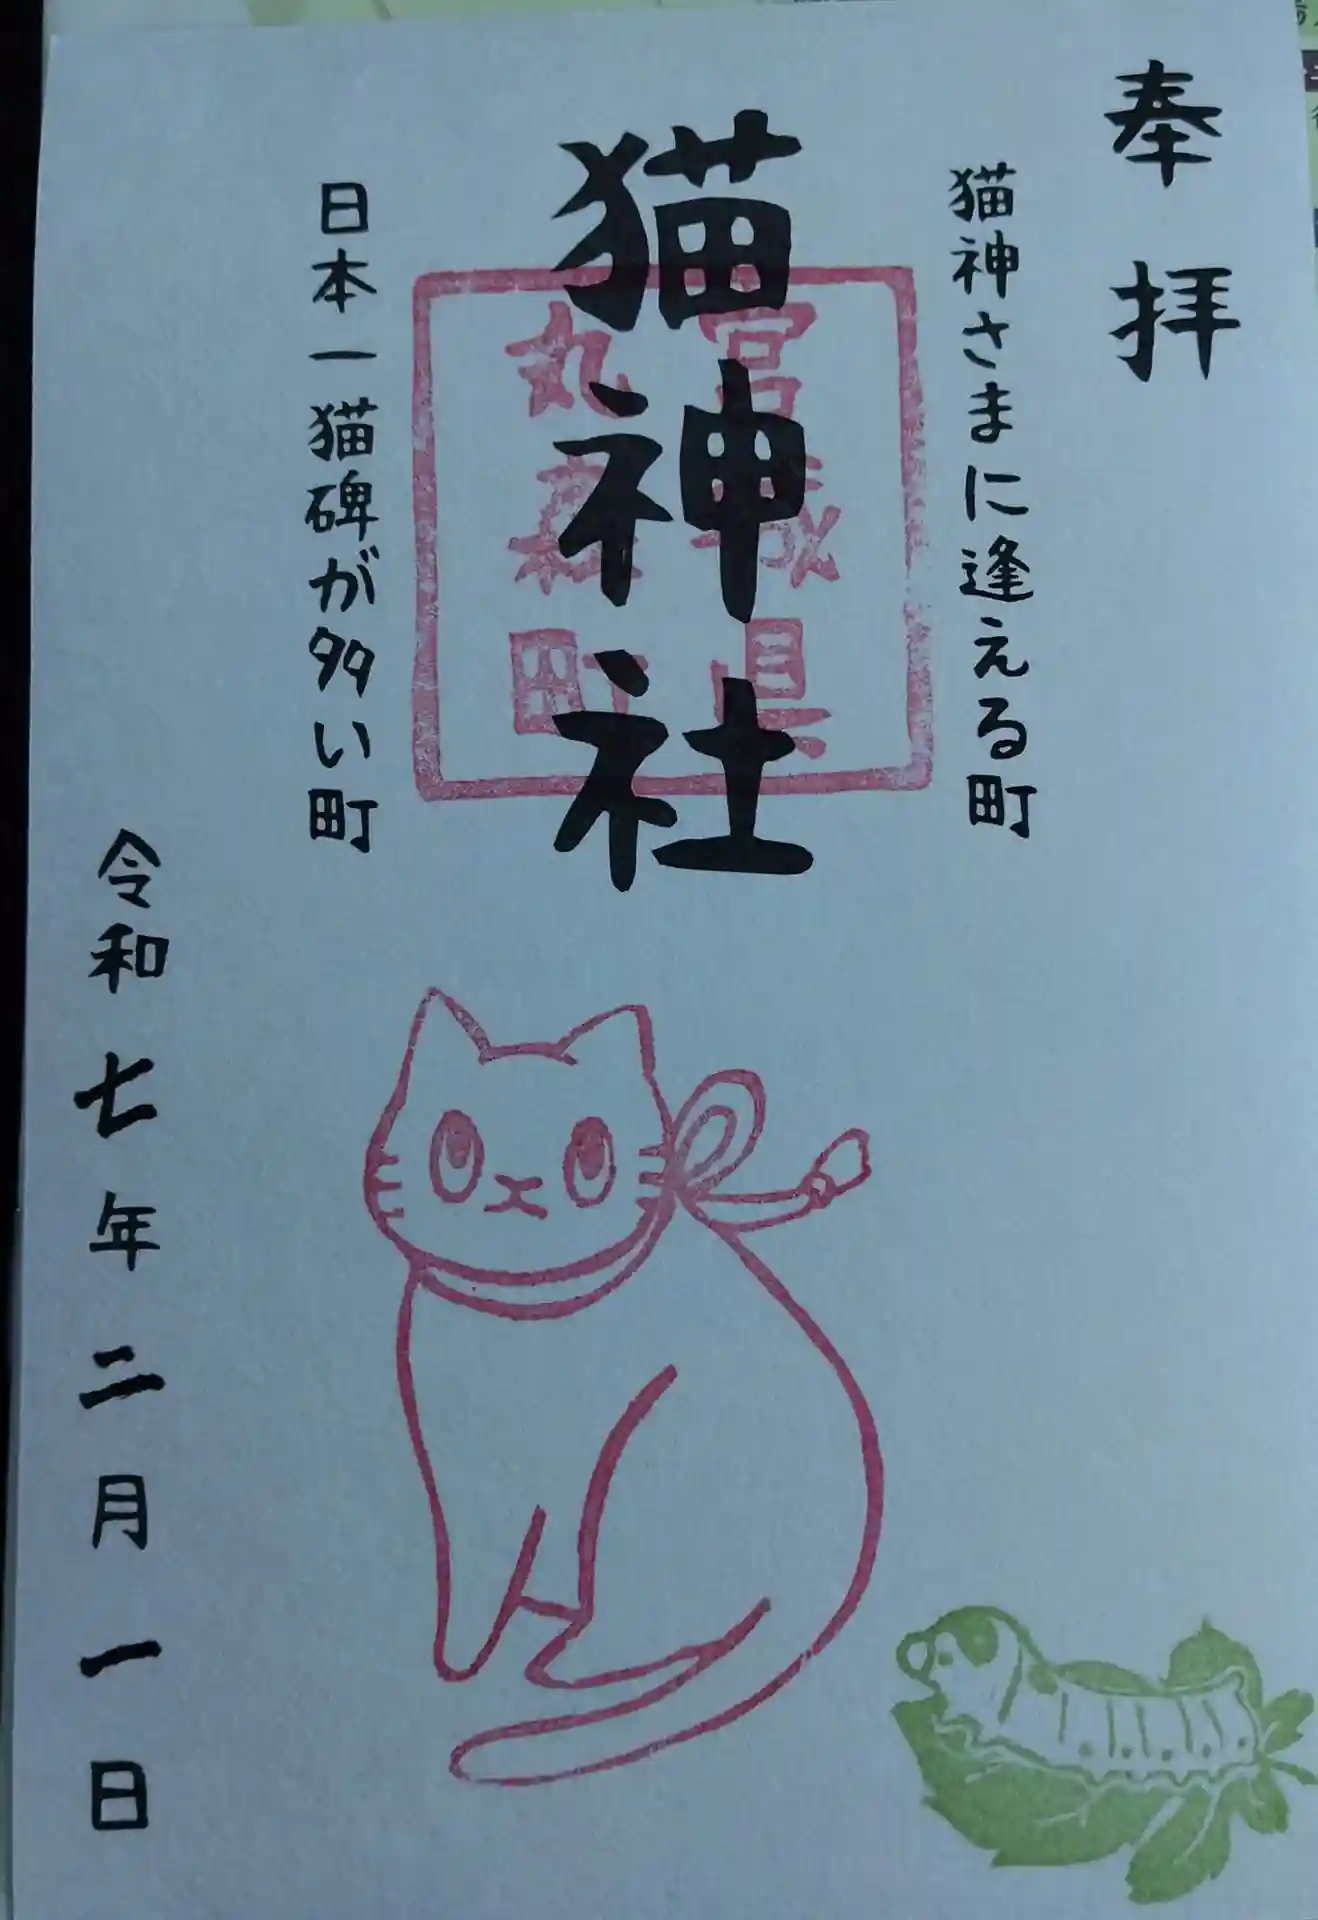 奉拝
猫神さまに逢える町
猫神社
宮城県
丸森町
日本一猫碑が多い町
令和七年二月一日